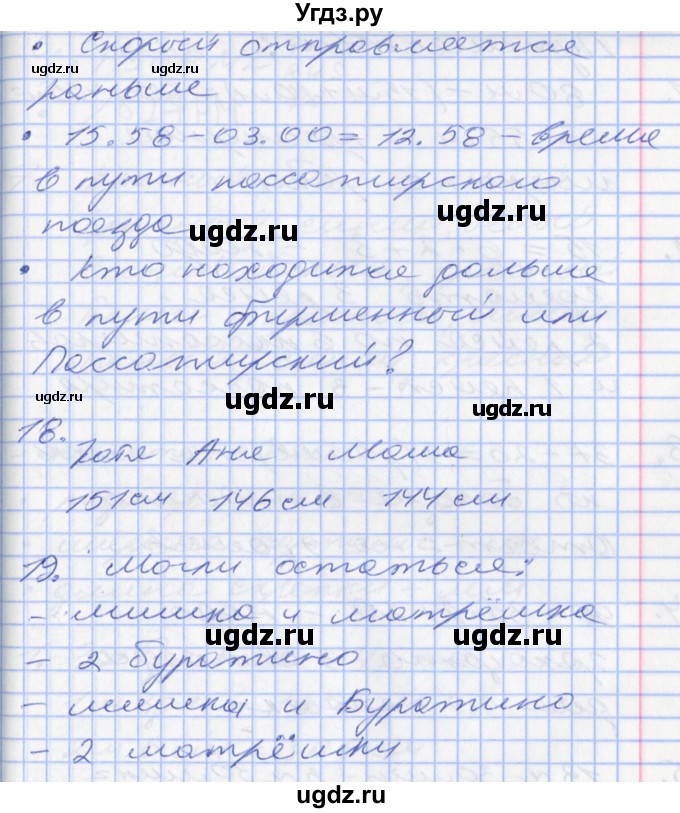 Угдз.ру
• Скорый отправляется
ugdz.ru ugdz.ru ugdz.ru
раньше
• 15.58 - 03.00 = 12.58 - время
ugdz.ru ugdz.ru
в пути пассажирского
ugdz.ru
поезда
ugdz.ru
• Кто находится дольше
в пути фирменный или
ugdz.ru
Пассажирский?
ugdz.ru ugdz.ru ugdz.ru
18.
Катя Аня Маша
151 см 146 см 144 см
19. Могли остаться:
- мишка и матрёшка
ugdz.ru ugdz.ru
- 2 Буратино
- мишка и Буратино
ugdz.ru
- 2 матрёшки
ugdz.ru